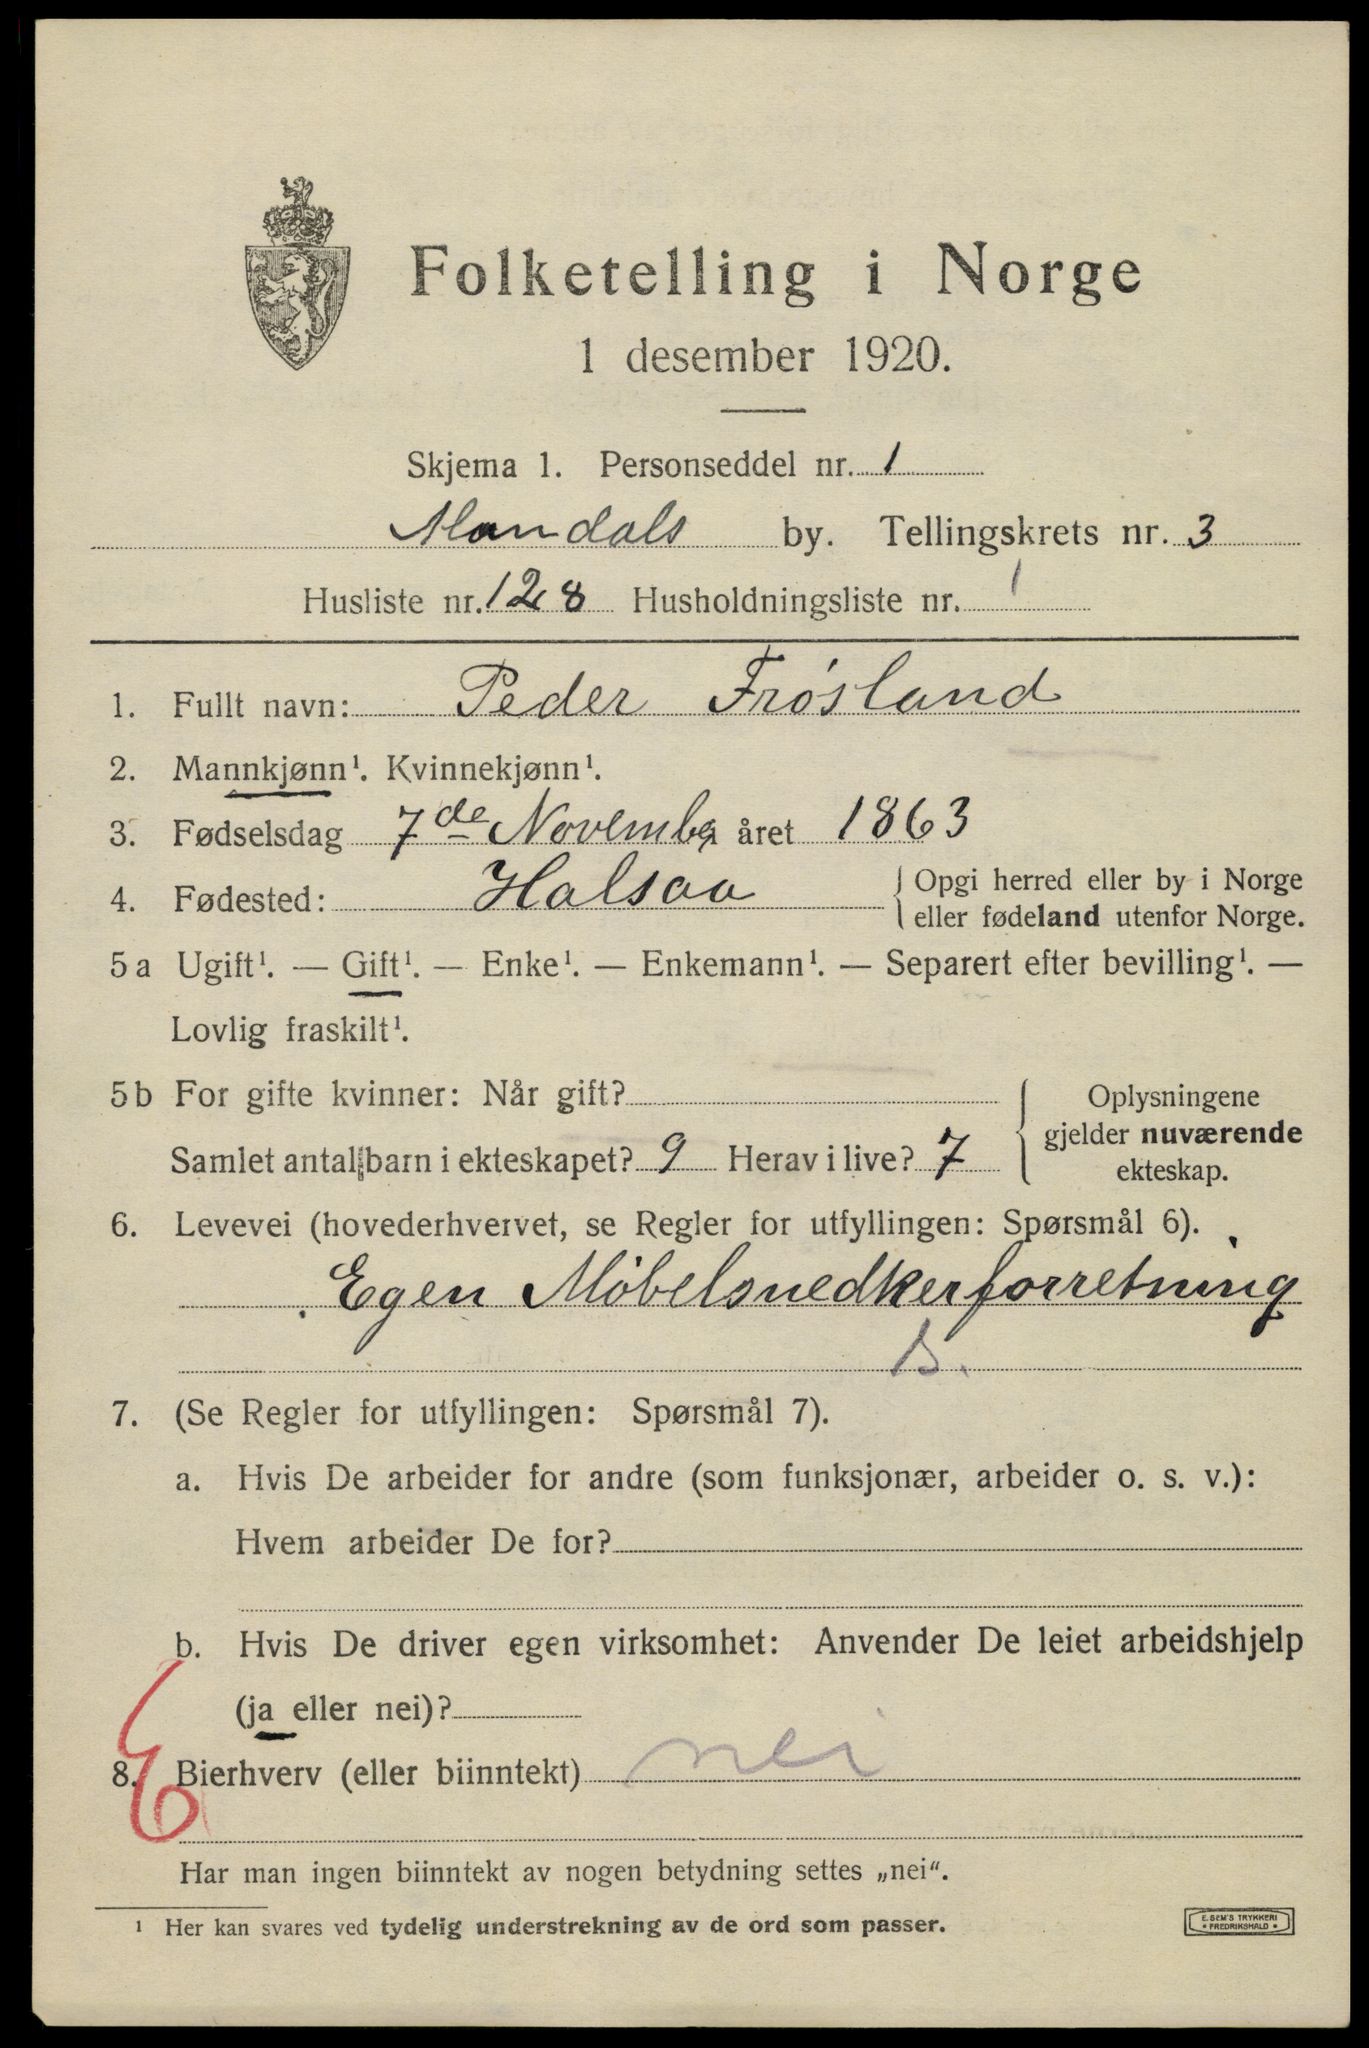 Folketelling i Norge
1 desember 1920.
Skjema 1. Personseddel nr. 1
Mandals by. Tellingskrets nr. 3
Husliste nr. 128 Husholdningsliste nr. 1
1. Fullt navn: Peder Frøsland
2. Mannkjønn¹. Kvinnekjønn¹.
3. Fødselsdag 7de November året 1863
4. Fødested: Halsaa { Opgi herred eller by i Norge
eller fødeland utenfor Norge.
5 a Ugift¹. — Gift¹. — Enke¹. — Enkemann¹. — Separert efter bevilling¹. —
Lovlig fraskilt¹.
5 b For gifte kvinner: Når gift?
Samlet antal barn i ekteskapet? 9 Herav i live? 7
{ Oplysningene
gjelder nuværende
ekteskap.
6. Levevei (hovederhvervet, se Regler for utfyllingen: Spørsmål 6).
Egen Møbelsnedkerforretning
S.
7. (Se Regler for utfyllingen: Spørsmål 7).
a. Hvis De arbeider for andre (som funksjonær, arbeider o. s. v.):
Hvem arbeider De for?
b. Hvis De driver egen virksomhet: Anvender De leiet arbeidshjelp
(ja eller nei)?
8. Bierhverv (eller biinntekt) nei
Har man ingen biinntekt av nogen betydning settes „nei“.
¹ Her kan svares ved tydelig understrekning av de ord som passer.
E. SEM'S TRYKKERI
• FREDRIKSHALD •